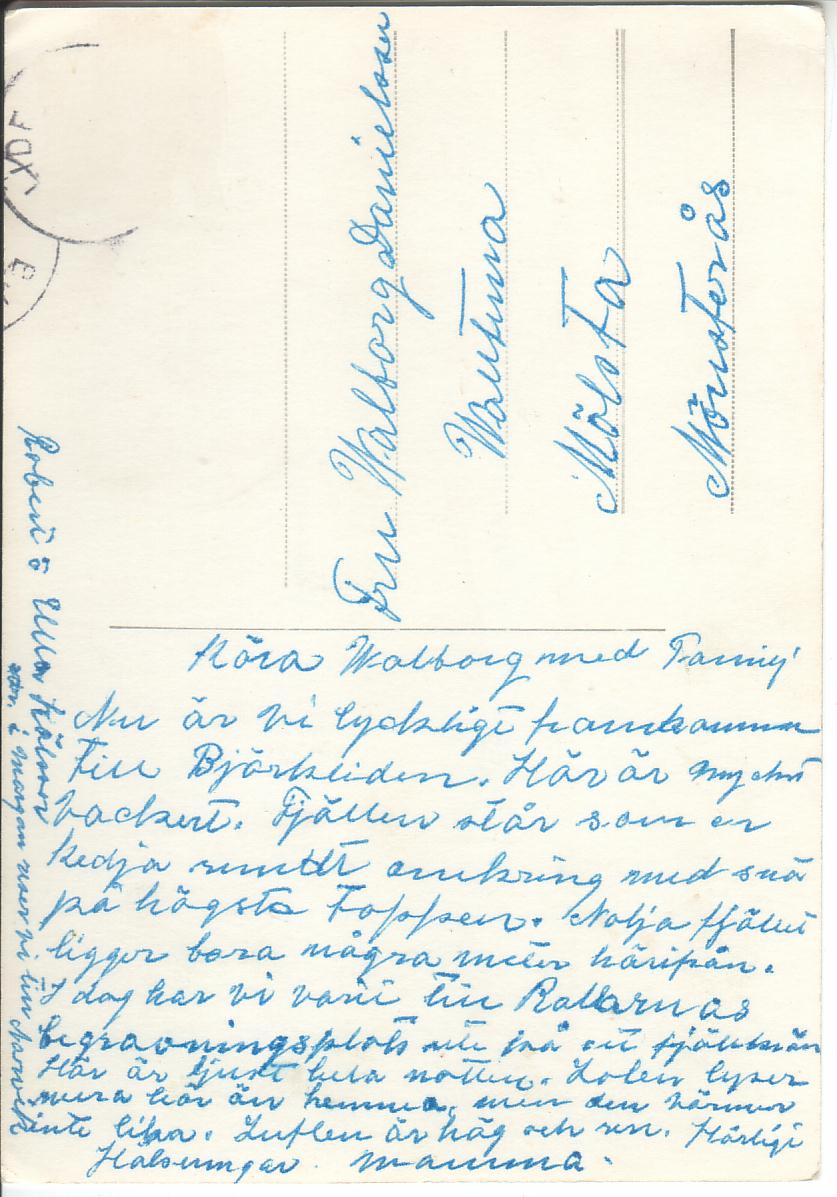 Fru Walborg Danielsson
Mölsta
Mönsterås
Kära Walborg med Familj
Nu är vi lyckligt framkomna
till Björkliden. Här är mycket
vackert. Fjällen står som en
kedja rundt omkring med snö
på högsta toppen. Nolja fjället
ligger bara några meter härifrån.
I dag har vi varit till Rallarnas
begravningsplats ute på ett
Här är ljust hela natten. Solen lyser
mera här än hemma, men den värmer
inte lika. Luften är hög och ren. Härligt
Hälsningar. Mamma.
Robert o Ellen
i morgon reser vi till Narvik